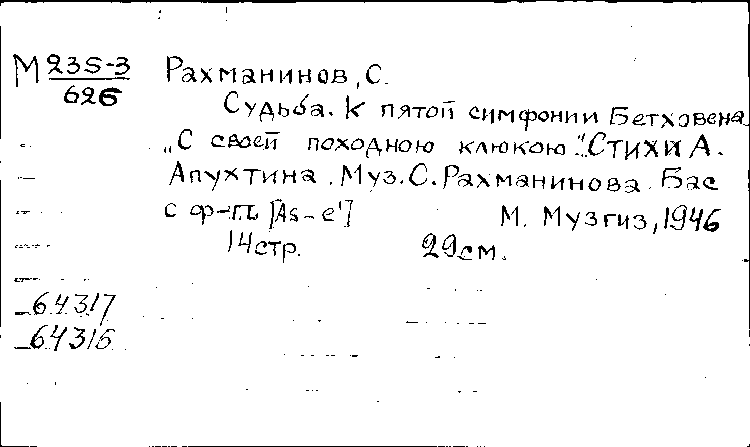 М 235-3
626
Рахманинов, С.
Судьба. К пятой симфонии Бетховена
„С своей походною клюкою." Стихи А.
Апухтина. Муз. С. Рахманинова. Бас
с ф-п. [As-e']
М. Музгиз, 1946
14стр. 29см.
64317
64316